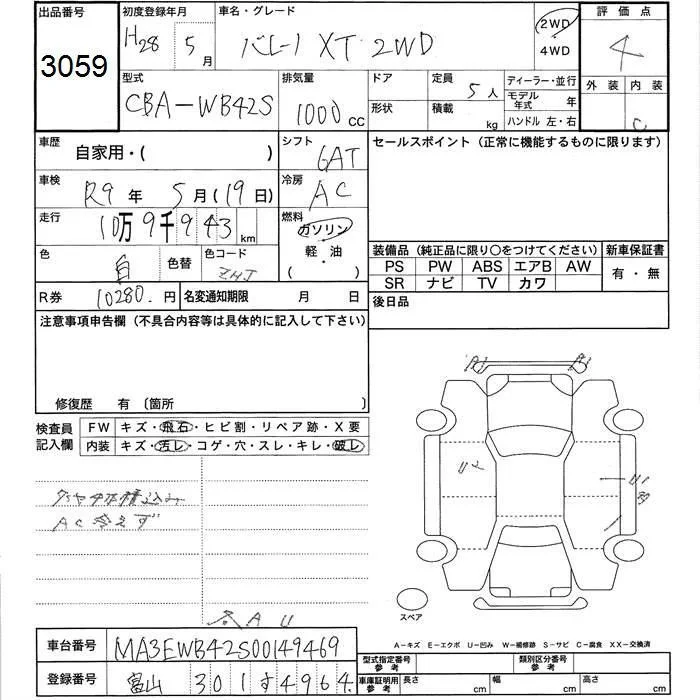 出品番号
3059
初度登録年月
H28 5月
車名・グレード
バレーノ XT 2WD
2WD
4WD
評価点
4
型式
CBA-WB42S
排気量
1000 CC
ドア
形状
定員
5人
積載
kg
ディーラー・並行
モデル年式 年
ハンドル 左・右
外装 内装
C
車歴
自家用・( )
シフト
GAT
セールスポイント(正常に機能するものに限ります)
車検
R9年 5月(19日)
冷房
AC
走行
10万9千943km
燃料
ガソリン
軽・油
( )
色
白
色替
色コード
ZHJ
装備品(純正品に限り〇をつけてください)
新車保証書
PS PW ABS エアB AW
SR ナビ TV カワ
有・無
R券 10280.円
名変通知期限 月 日
後日品
注意事項申告欄(不具合内容等は具体的に記入して下さい)
修復歴 有〔箇所 〕
検査員記入欄
FW キズ・飛石・ヒビ割・リペア跡・X要
内装 キズ・汚レ・コゲ・穴・スレ・キレ・破レ
AC
A1
A1
U2
U1
スペア
A-キズ E-エクボ U-凹み W-補修跡 S-サビ C-腐食 XX-交換済
車台番号
MA3EWB42S00149469
登録番号
富山 301 す 4964
型式指定番号 参考
類別区分番号 参考
車庫証明用 参考
長さ cm
幅 cm
高さ cm